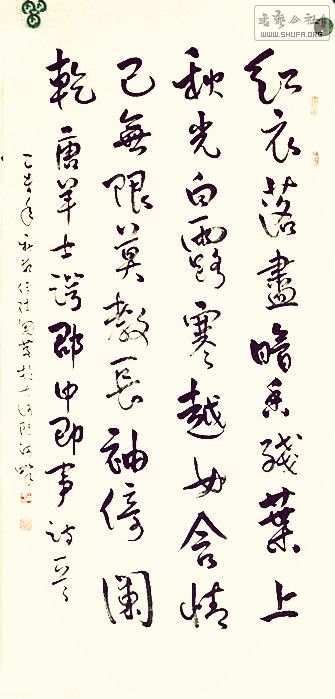 書藝公社
WWW.SHUFA.ORG
紅衣落盡暗香殘葉上
秋光白露寒越女含情
已無限莫教長袖倚闌
乾唐羊士諤郡中即事詩一首